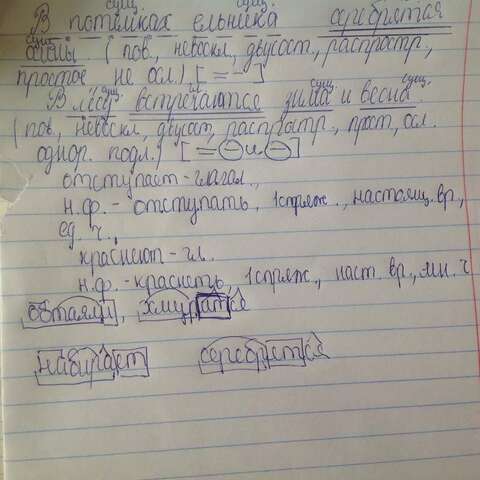 сущ. сущ.
В потёмках ельника серебрятся
сущ.
(пов., невоскл, двусост., распростр.,
простое не осл.) [= -]
сущ. сущ. сущ.
В лесу встречаются зима и весна.
(пов., невоскл, двусост, распростр., прост, осл.
однор. подл.) [= – и –]
отступает - глагол.,
н.ф. - отступать, 1 спряж., настоящ. вр.,
ед. ч.,
краснеют - гл.
н.ф. - краснеть, 1 спряж., наст. вр., мн. ч
обтаяли, хмурятся
набирает серебрятся